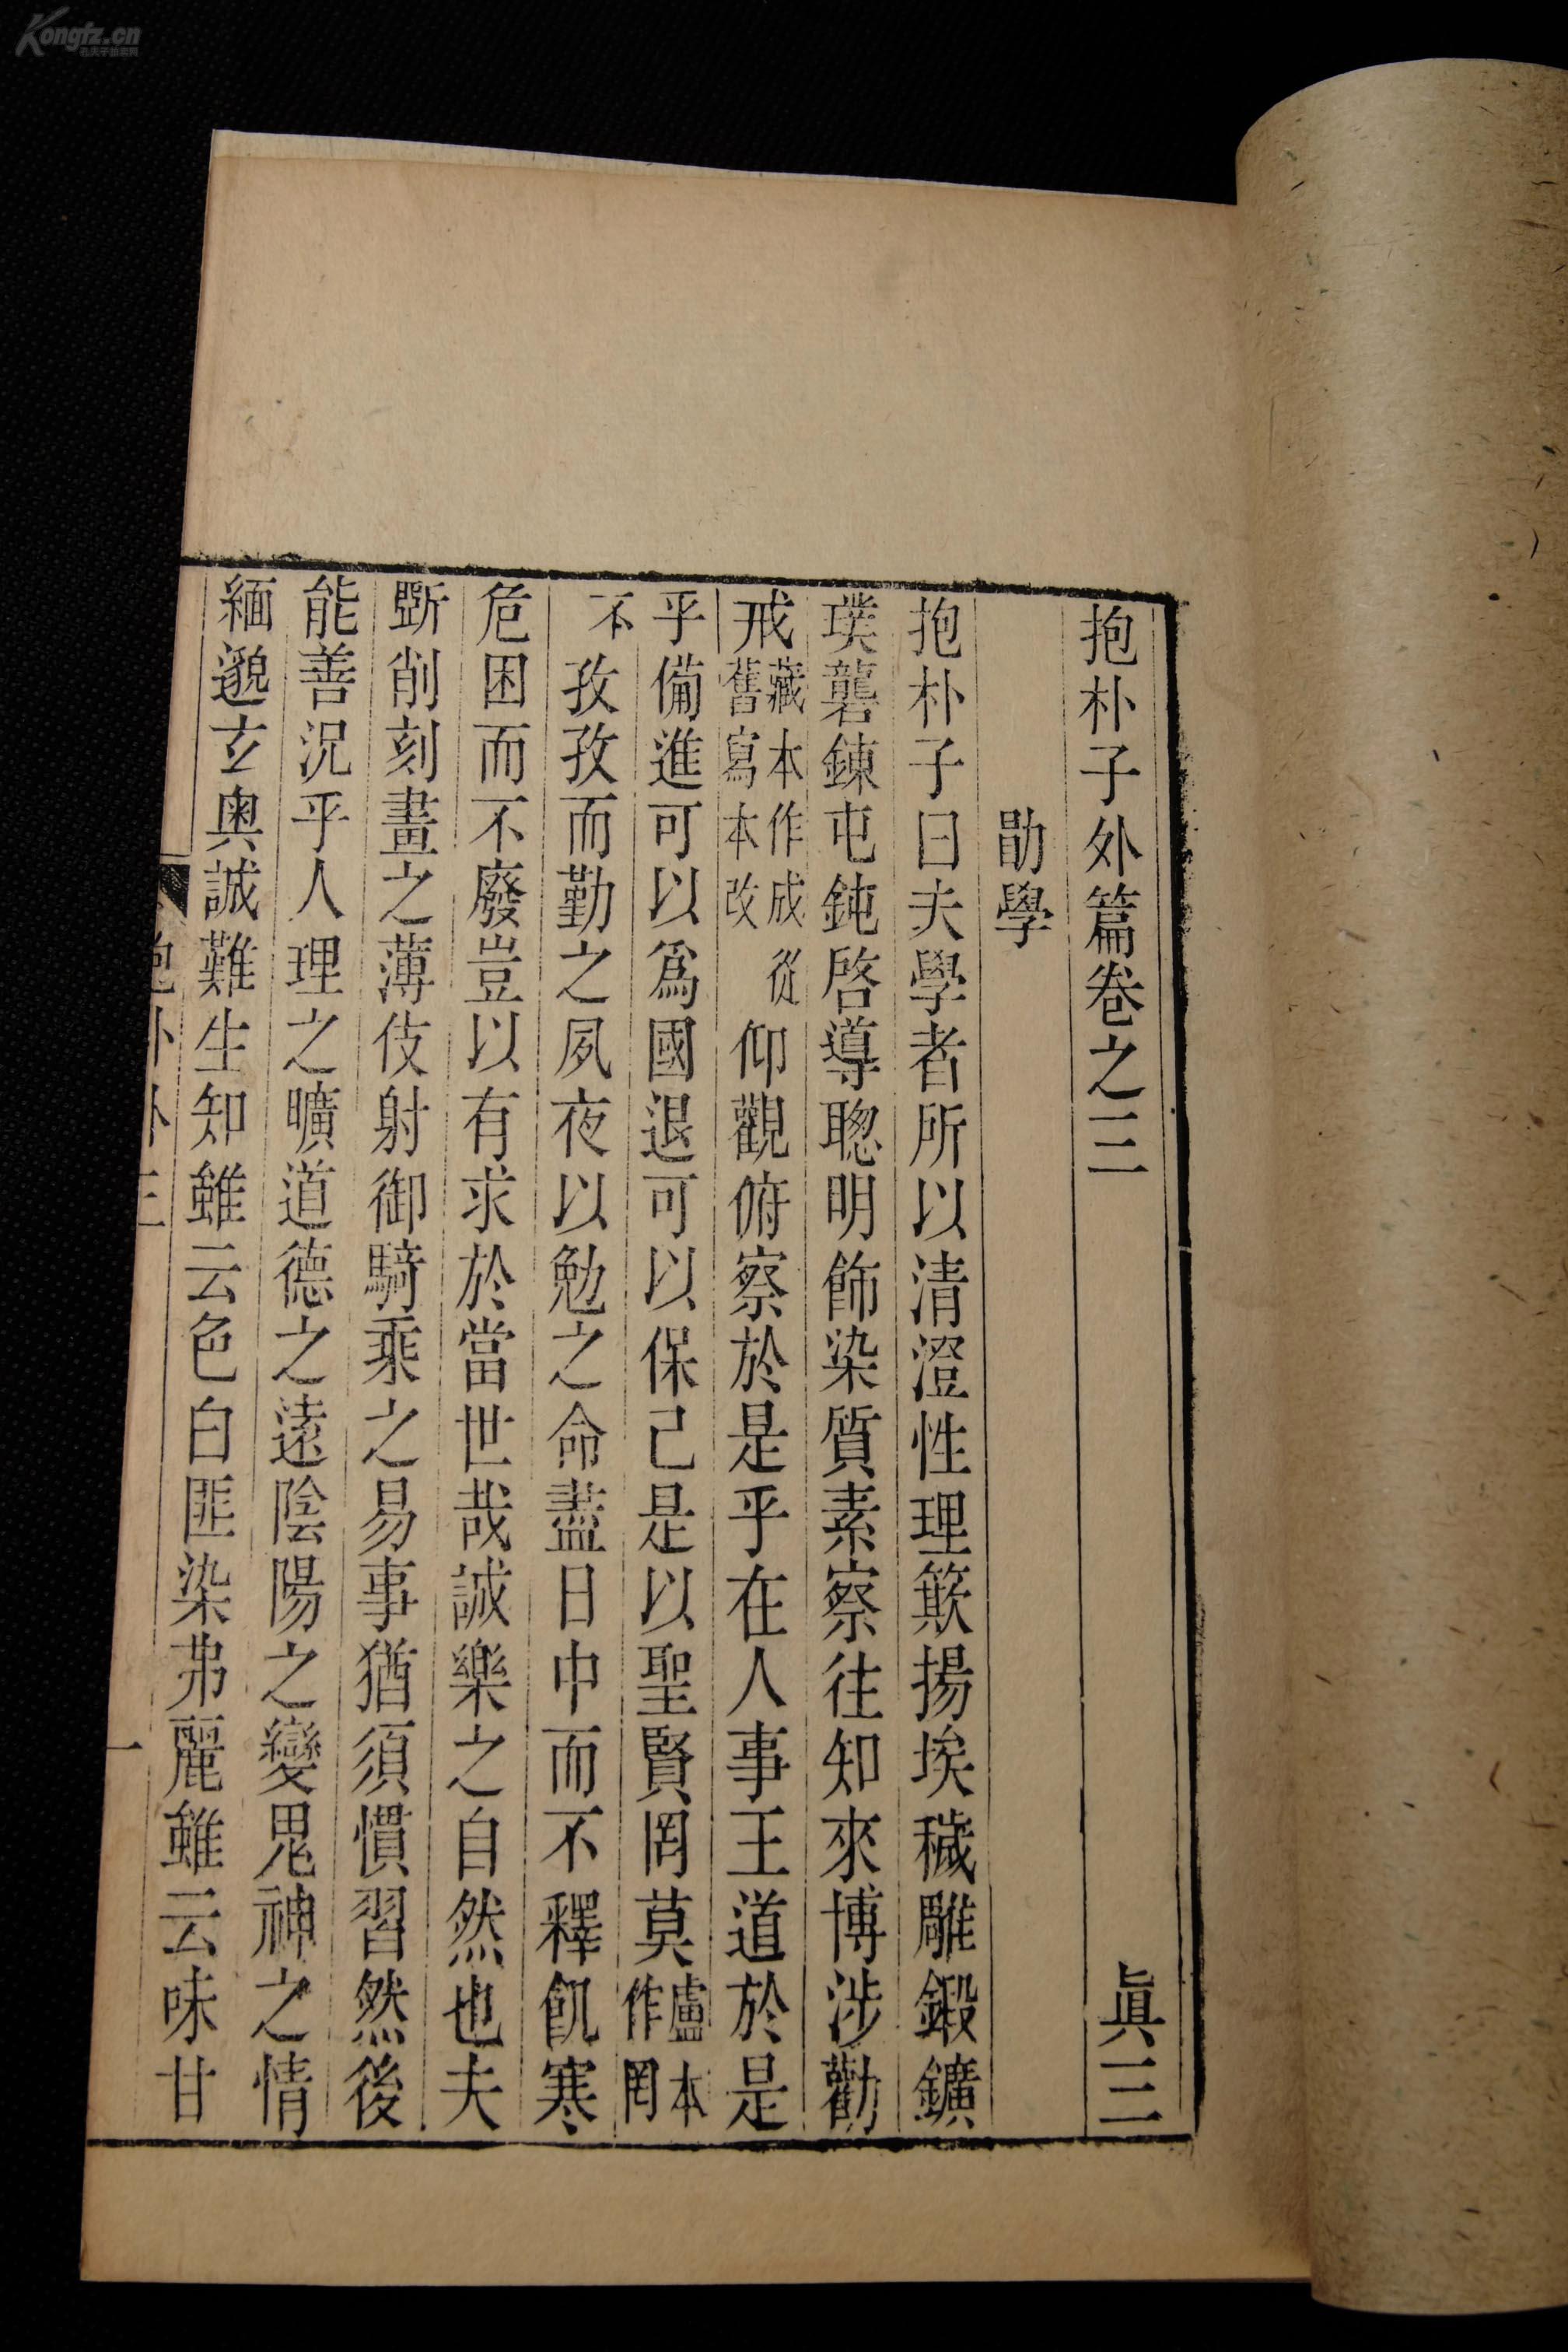 抱朴子外篇卷之三 真三
勖學
抱朴子曰夫學者所以清澄性理簸揚埃穢雕鍛鑛
璞礱鍊屯鈍啓導聰明飾染質素察往知來博涉勸
戒藏本作成從舊寫本改仰觀俯察於是乎在人事王道於是
乎備進可以爲國退可以保己是以聖賢罔莫盧本作罔
不孜孜而勤之夙夜以勉之命盡日中而不釋飢寒
危困而不廢豈以有求於當世哉誠樂之自然也夫
斲削刻畫之薄伎射御騎乘之易事猶須慣習然後
能善況乎人理之曠道德之遠陰陽之變鬼神之情
緬邈玄奥誠難生知雖云色白匪染弗麗雖云味甘
一
Kongfz.cn